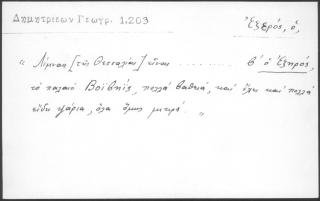 Δημητριεων Γεωγρ. 1.203
Ἐξερός, ὁ,
"Λίμναι [τῆς Θεσσαλίας] εἶναι .......... β' ὁ Ἐξηρός,
τὸ παλαιὸ Βοιβηΐς, πολλὰ βαθειά, καὶ ἔχει καὶ πολλὰ
εἴδη ψάρια, ὅλα ὅμως μικρά. "